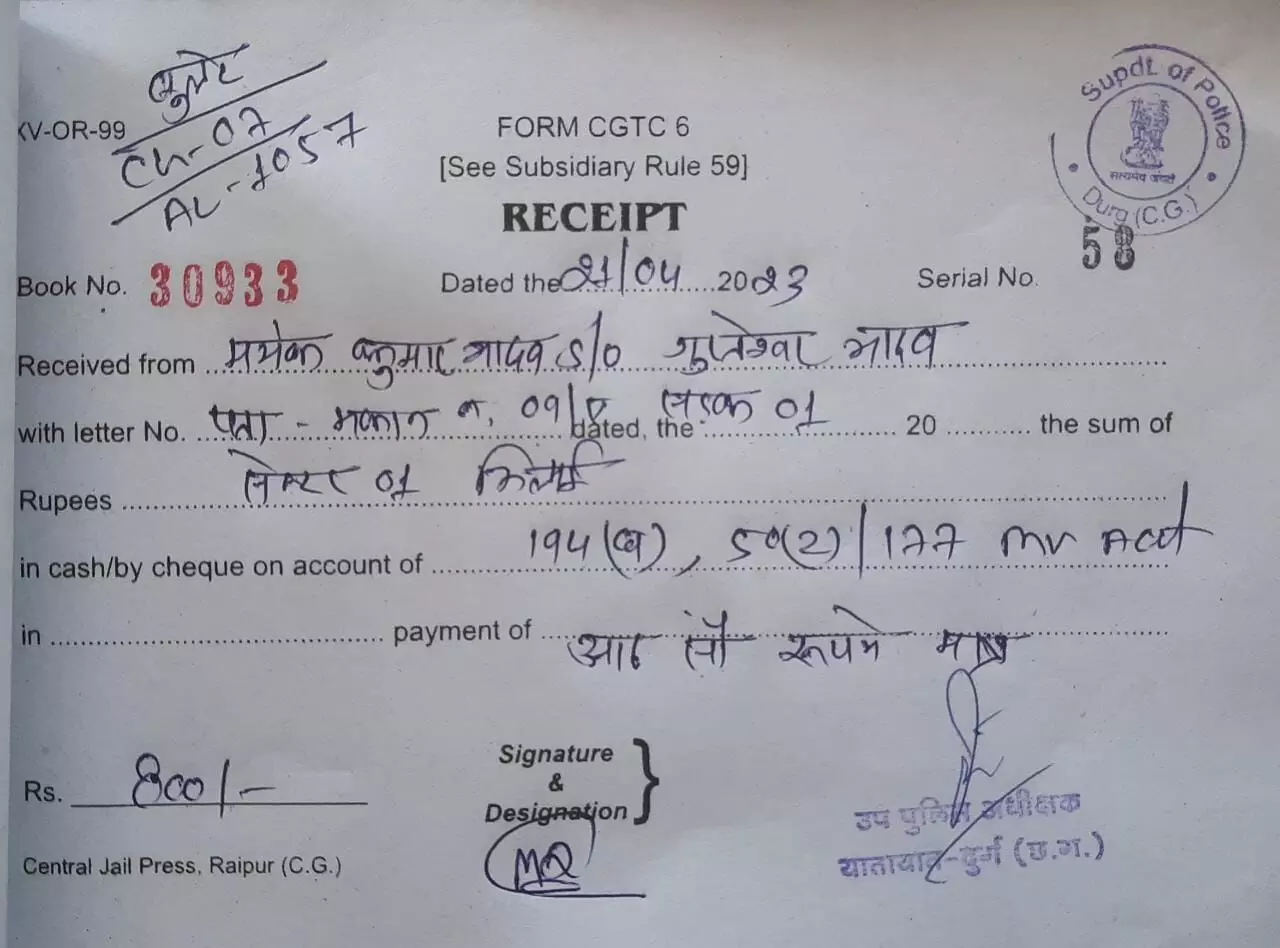 बुलेट
CH-07
AL-1057
KV-OR-99
FORM CGTC 6
[See Subsidiary Rule 59]
RECEIPT
Supdt. of Police
सत्यमेव जयते
Durg (C.G.)
Book No. 30933 Dated the 21/04 2023 Serial No. 58
Received from मयंक कुमार यादव S/O गुप्तेश्वर यादव
with letter No. पता - मकान न. 09/ dated, the सडक 01 20 the sum of
Rupees सेक्टर 01 भिलाई
in cash/by cheque on account of 194(ब), 50(2)/177 MV Act
in payment of आठ सौ रूपये मात्र
Rs. 800/-
Signature
&
Designation
उप पुलिस अधीक्षक
यातायात-दुर्ग (छ.ग.)
Central Jail Press, Raipur (C.G.)